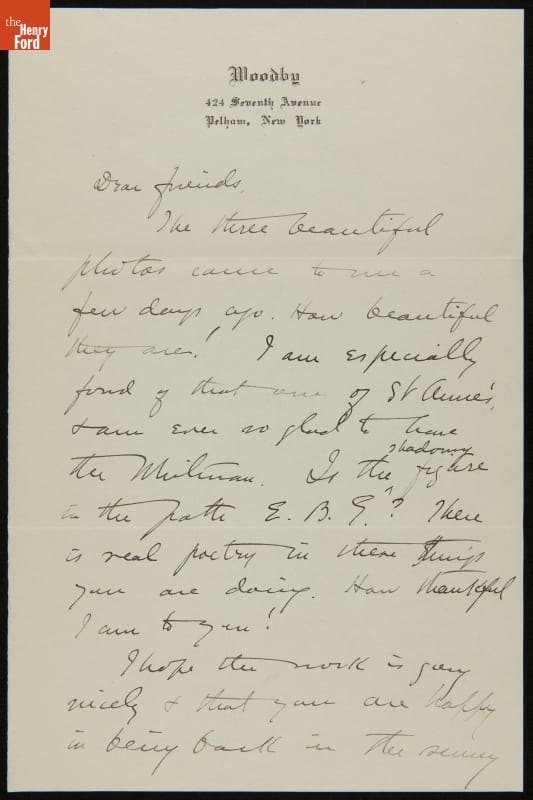 the
Henry
Ford
Woodby
424 Seventh Avenue
Pelham, New York
Dear friends,
The three beautiful
photos came to me a
few days ago. How beautiful
they are! I am especially
fond of that one of St Anne's,
& am ever so glad to have
the Whitman. Is the shadowy figure
in the path E. B. G.? There
is real poetry in these things
you are doing. How thankful
I am to you!
I hope the work is going
nicely & that you are happy
in being back in the sunny